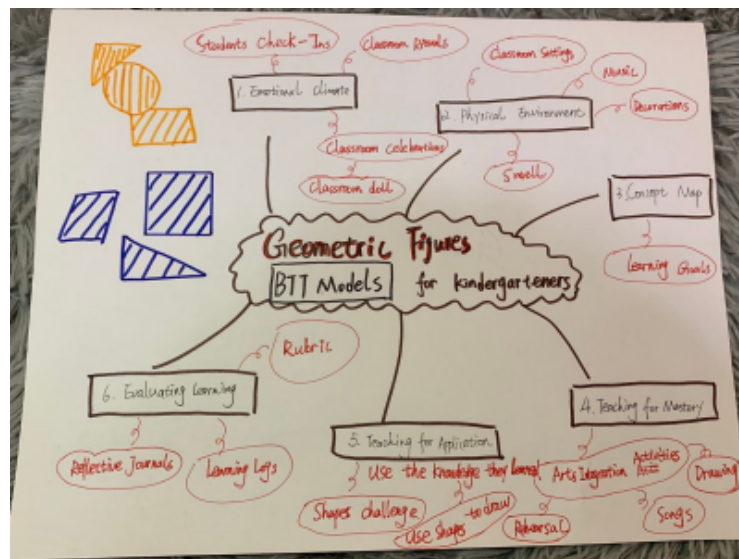 Students Check-Ins
Classroom Rituals
1. Emotional Climate
Classroom Celebrations
Classroom doll
Classroom Settings
Music
2. Physical Environment
Decorations
Smell
3. Concept Map
Learning Goals
Geometric Figures
BTT Models for kindergarteners
Rubric
6. Evaluating Learning
Reflective Journals
Learning Logs
5. Teaching for Application
Use the knowledge they learned
Shapes challenge
Use shapes to draw
4. Teaching for Mastery
Arts Integration Activities
Drawing
Rehearsal
Songs